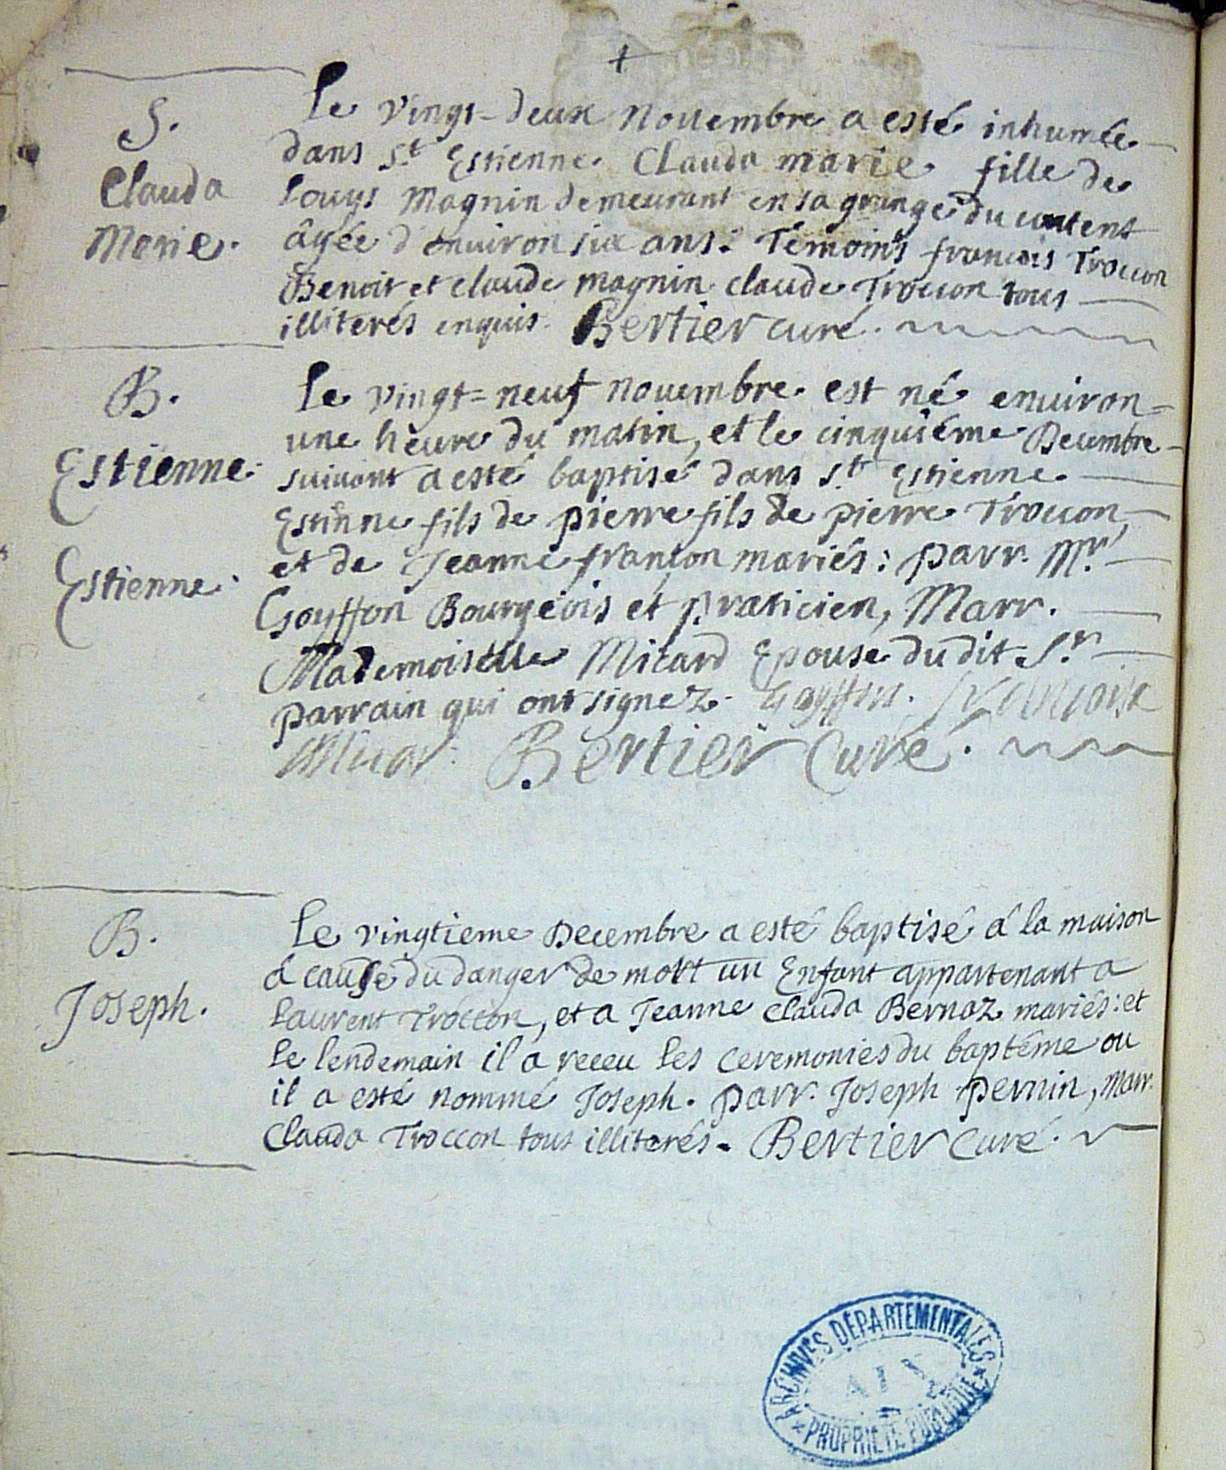 +
S.
Clauda
Marie.
Le vingt-deux Nouembre a esté inhumée
dans St. Estienne. Clauda marie fille de
Louys Magnin demeurant en sa grange du
âgée d'enuiron six ans. Témoins francois Troccon
Benoit et claude magnin claude Troccon tous
illiterés enquis. Bertier curé.
B.
Estienne.
Estienne.
Le vingt=neuf nouembre est né enuiron
une heure du matin, et le cinquiéme Decembre
suiuant a esté baptisé dans St. Estienne.
Estinne fils de pierre fils de pierre Troccon
et de Jeanne françon mariés: parr. Mr.
Goyffon Bourgeois et praticien, Marr.
Mademoiselle Micard Epouse du dit Sr.
parrain qui ont signez. Goyffon. francoise
Micar. Bertier Curé.
B.
Joseph.
Le vingtieme Decembre a esté baptisé á la maison
á cause du danger de mort un Enfant appartenant a
Laurent Troccon, et a Jeanne Clauda Bernaz mariés: et
le lendemain il a receu les ceremonies du baptéme ou
il a esté nommé Joseph. parr. Joseph pernin, Marr.
Clauda Troccon tous illiterés. Bertier Curé.
ARCHIVES DÉPARTEMENTALES
AIN
PROPRIÉTÉ PUBLIQUE